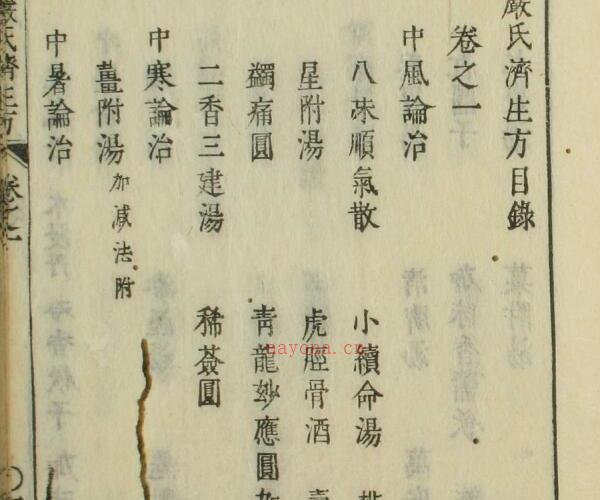 嚴氏濟生方目錄
卷之一
中風論治
八味順氣散 小續命湯
星附湯 虎脛骨酒
蠲痛圓 青龍妙應圓
二香三建湯 稀薟圓
中寒論治
薑附湯 加减法附
中暑論治
嚴氏濟生方 卷之一
nayona.cn